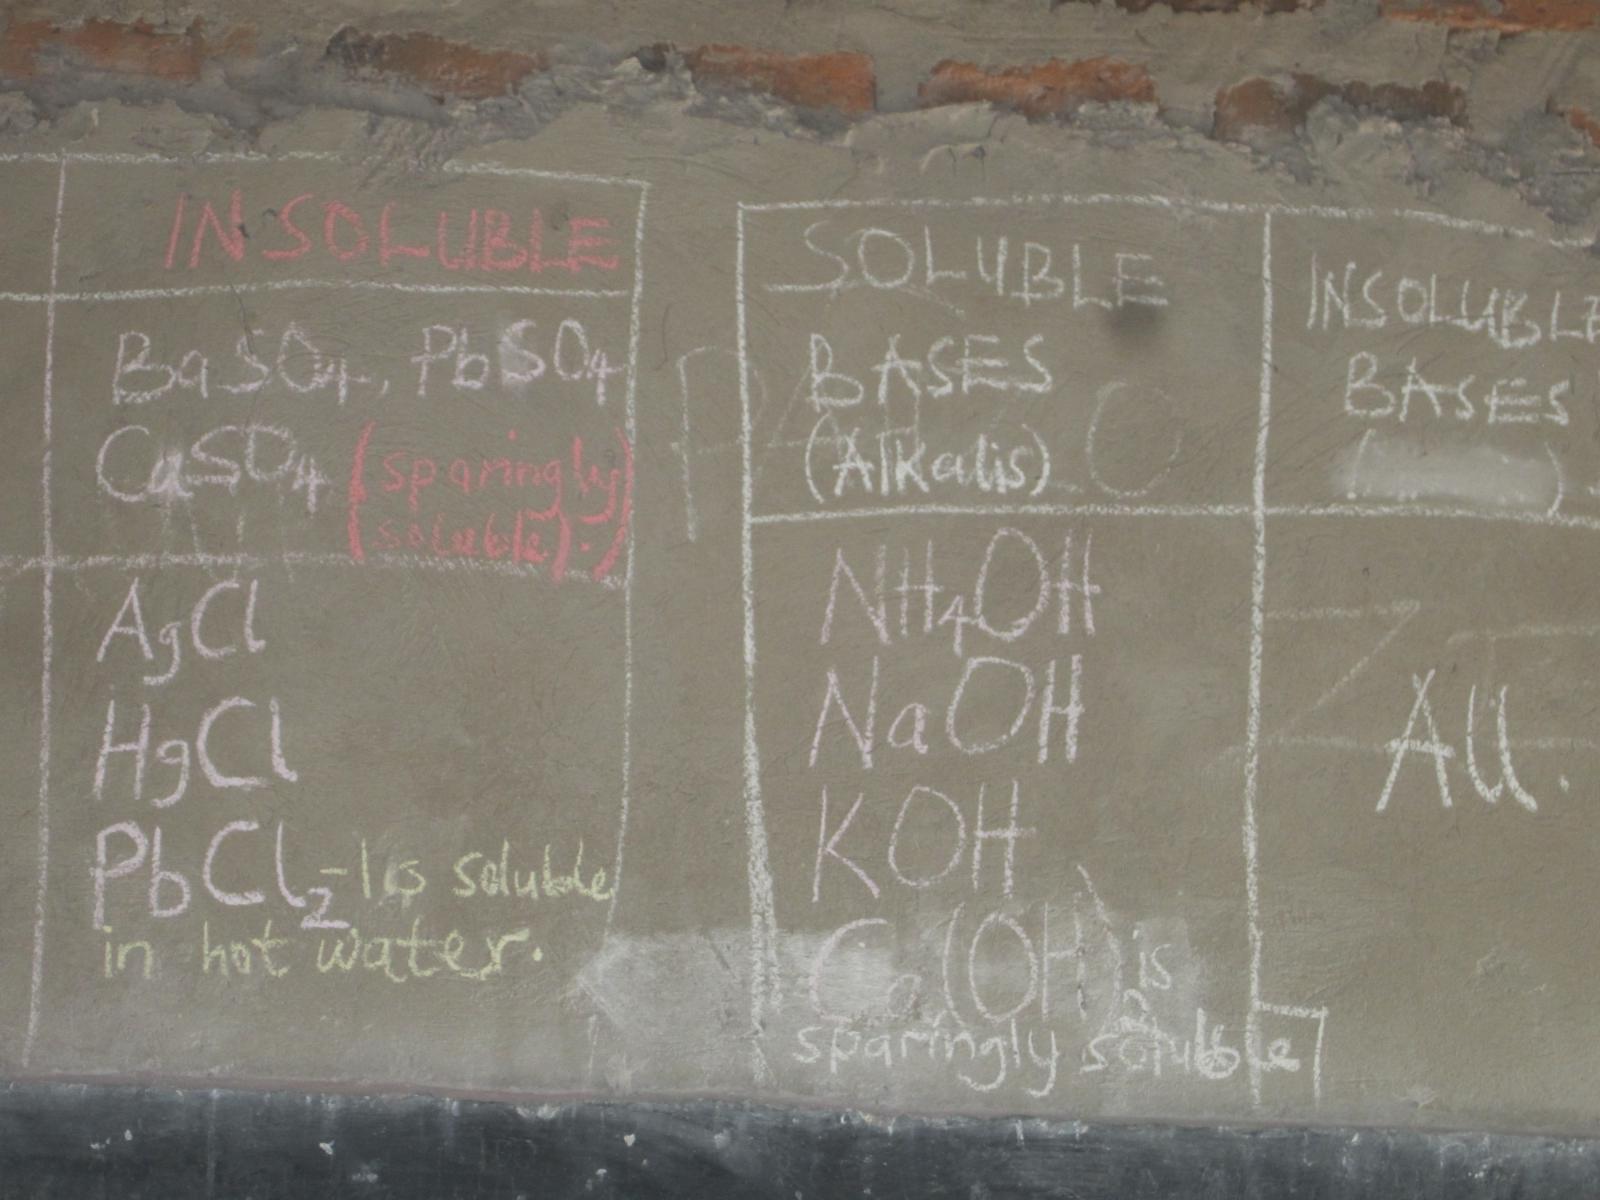 INSOLUBLE
BaSO4, PbSO4
CaSO4 (sparingly
soluble).)
AgCl
HgCl
PbCl2 - Is soluble
in hot water.
SOLUBLE
BASES
(Alkalis)
NH4OH
NaOH
KOH
Ca(OH)2 is
sparingly soluble
INSOLUBLE
BASES
All.